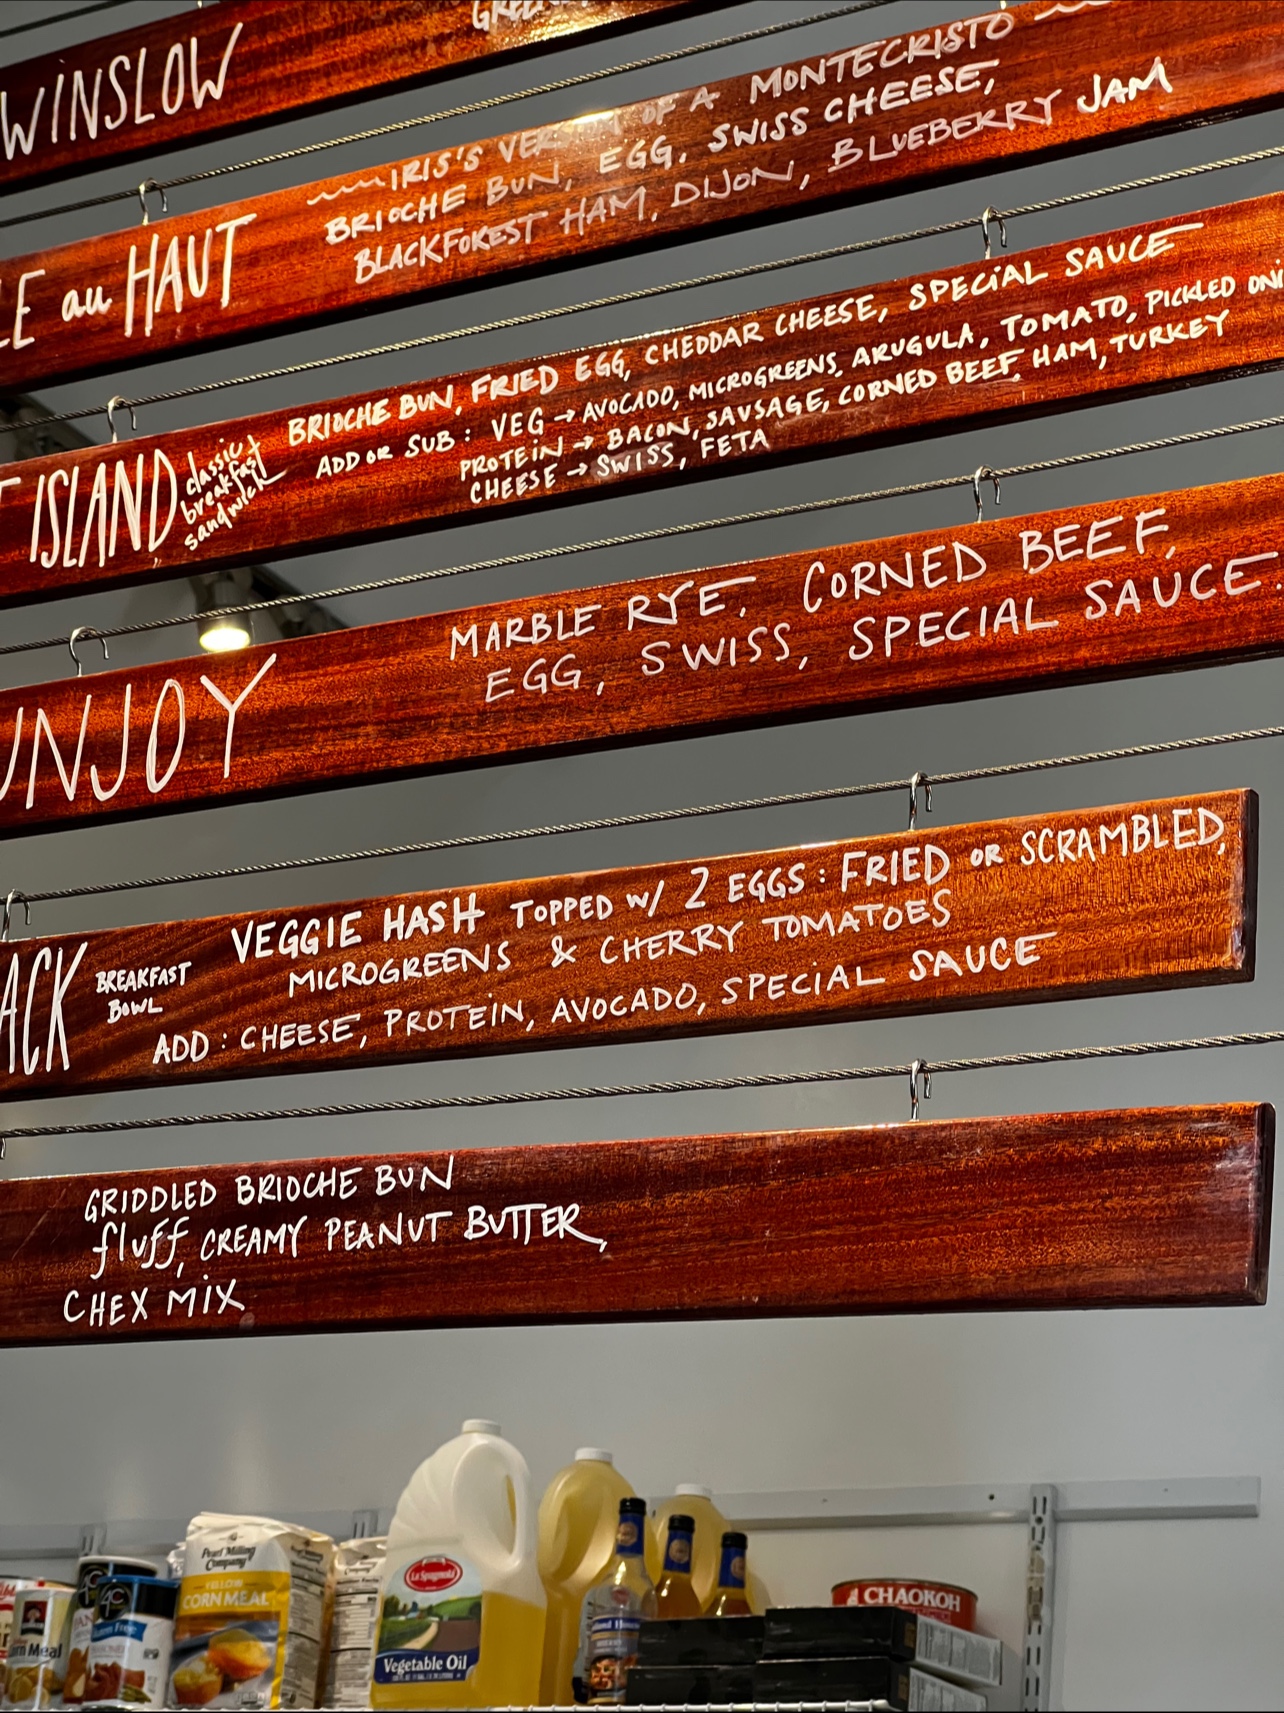 WINSLOW
IRIS'S OF A MONTECRISTO
BRIOCHE BUN, EGG, SWISS CHEESE,
BLACKFOREST HAM, DIJON, BLUEBERRY JAM
LE au HAUT
BRIOCHE BUN, FRIED EGG, CHEDDAR CHEESE, SPECIAL SAUCE
ADD OR SUB: VEG → AVOCADO, MICROGREENS, ARUGULA, TOMATO, PICKLED ONI
PROTEIN → BACON, SAUSAGE, CORNED BEEF, HAM, TURKEY
CHEESE → SWISS, FETA
ISLAND
classic
breakfast
sandwich
MARBLE RYE, CORNED BEEF,
EGG, SWISS, SPECIAL SAUCE
UNJOY
ACK
BREAKFAST
BOWL
VEGGIE HASH TOPPED W/ 2 EGGS: FRIED OR SCRAMBLED,
MICROGREENS & CHERRY TOMATOES
ADD: CHEESE, PROTEIN, AVOCADO, SPECIAL SAUCE
GRIDDLED BRIOCHE BUN
fluff, CREAMY PEANUT BUTTER,
CHEX MIX
Pearl Milling
Company
YELLOW
CORN MEAL
La Spagnola
Vegetable Oil
CHAOKOH
4C
Free
Meal